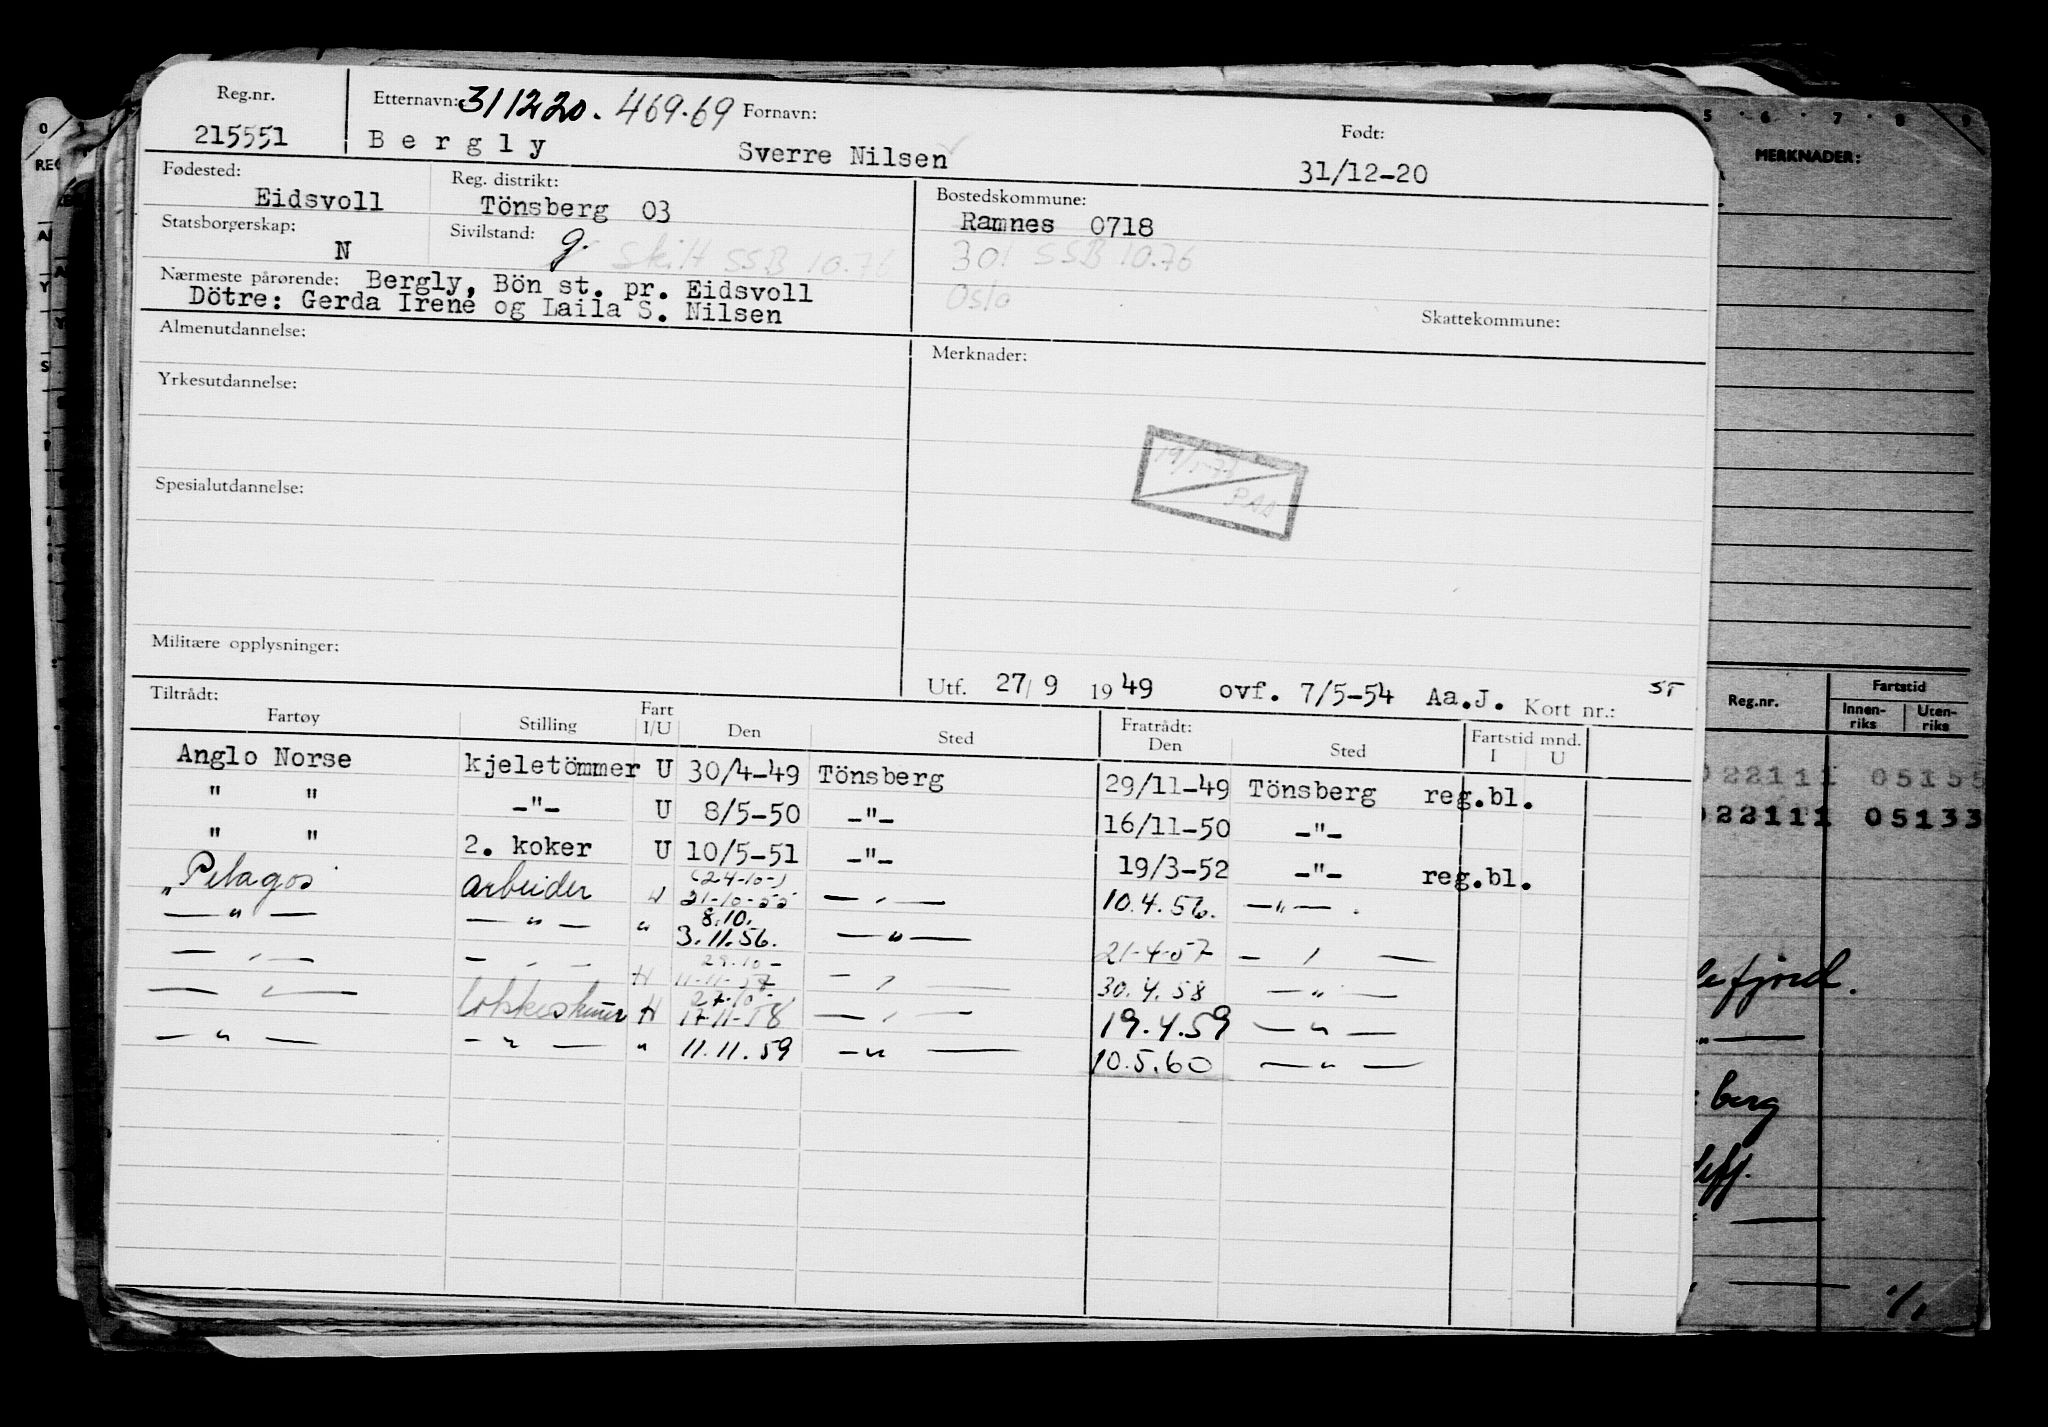 Reg.nr. 215551
Etternavn: 311220. 469.69 Fornavn: Født:
Bergly Sverre Nilsen 31/12-20
Fødested: Eidsvoll Reg. distrikt: Tönsberg 03 Bostedskommune: Ramnes 0718
Statsborgerskap: N Sivilstand: g. Skilt SSB 10.76 301 SSB 10.76
Oslo
Nærmeste pårørende: Bergly, Bön st. pr. Eidsvoll
Dötre: Gerda Irene og Laila S. Nilsen
Skattekommune:
Almenutdannelse:
Merknader:
Yrkesutdannelse:
Spesialutdannelse:
Militære opplysninger:
Utf. 27/9 1949 ovf. 7/5-54 Aa.J. Kort nr.: ST
Tiltrådt: Fratrådt:
Fartøy Stilling Fart I/U Den Sted Den Sted Fartstid mnd. I U
Anglo Norse kjeletömmer U 30/4-49 Tönsberg 29/11-49 Tönsberg reg.bl.
" " -"- U 8/5-50 -"- 16/11-50 -"-
" " 2. koker U 10/5-51 -"- 19/3-52 -"- reg.bl.
"Pelagos arbeider (24-10-) 21-10-55 — " — 10.4.56. — " —
— " — — " — " 8.10. 3.11.56. — " — 21-4-57 — " —
— " — — " — H 29.10- 11-11-57 — " — 30.4.58 — " —
— " — H 27.10- 17-11-58 — " — 19.4.59 — " —
— " — — " — " 11.11.59 — " — 10.5.60 — " —
MERKNADER:
Reg.nr. Fartstid
Innen-riks Uten-riks
022111 05155
022111 05133
efjord.
berg